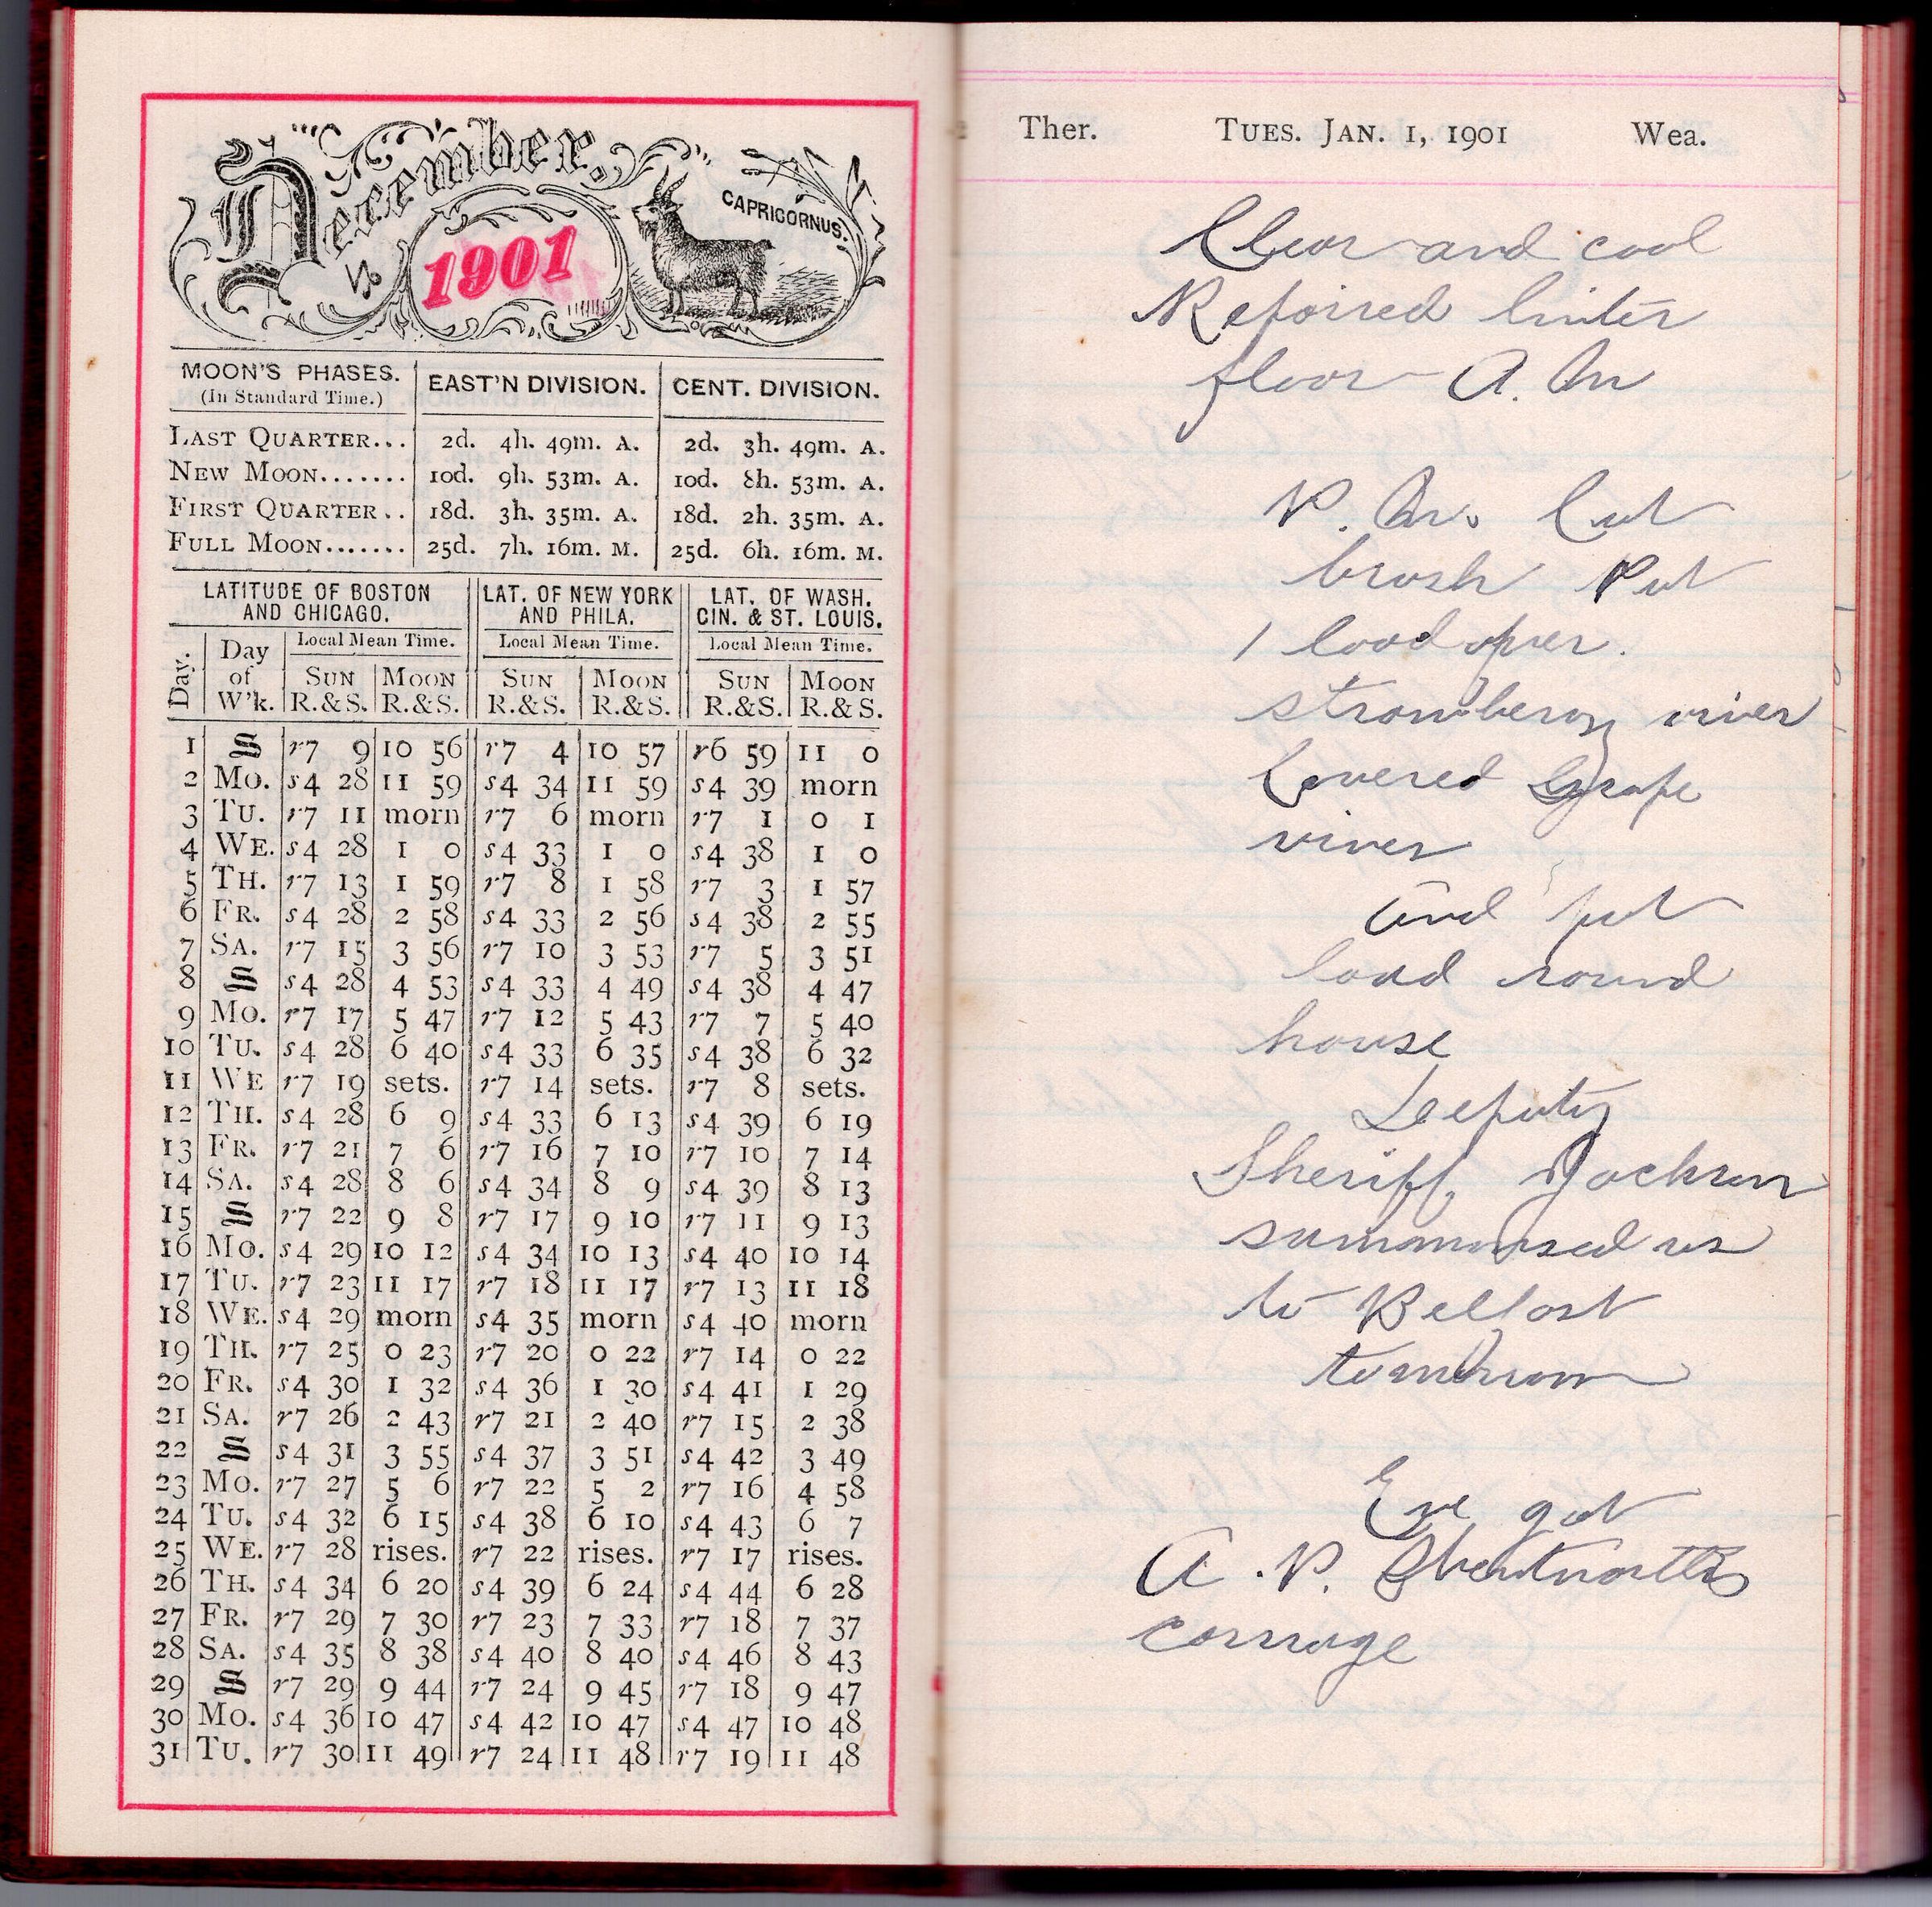 December.
1901
CAPRICORNUS.
MOON'S PHASES. EAST'N DIVISION. CENT. DIVISION.
(In Standard Time.)
LAST QUARTER... 2d. 4h. 49m. A. 2d. 3h. 49m. A.
NEW MOON....... 10d. 9h. 53m. A. 10d. 8h. 53m. A.
FIRST QUARTER.. 18d. 3h. 35m. A. 18d. 2h. 35m. A.
FULL MOON....... 25d. 7h. 16m. M. 25d. 6h. 16m. M.
LATITUDE OF BOSTON LAT. OF NEW YORK LAT. OF WASH.
AND CHICAGO. AND PHILA. CIN. & ST. LOUIS.
Day. Day Local Mean Time. Local Mean Time. Local Mean Time.
of SUN MOON SUN MOON SUN MOON
W'k. R.&S. R.&S. R.&S. R.&S. R.&S. R.&S.
1 S r7 9 10 56 r7 4 10 57 r6 59 11 0
2 MO. s4 28 11 59 s4 34 11 59 s4 39 morn
3 TU. r7 11 morn r7 6 morn r7 1 0 1
4 WE. s4 28 1 0 s4 33 1 0 s4 38 1 0
5 TH. r7 13 1 59 r7 8 1 58 r7 3 1 57
6 FR. s4 28 2 58 s4 33 2 56 s4 38 2 55
7 SA. r7 15 3 56 r7 10 3 53 r7 5 3 51
8 S s4 28 4 53 s4 33 4 49 s4 38 4 47
9 MO. r7 17 5 47 r7 12 5 43 r7 7 5 40
10 TU. s4 28 6 40 s4 33 6 35 s4 38 6 32
11 WE r7 19 sets. r7 14 sets. r7 8 sets.
12 TH. s4 28 6 9 s4 33 6 13 s4 39 6 19
13 FR. r7 21 7 6 r7 16 7 10 r7 10 7 14
14 SA. s4 28 8 6 s4 34 8 9 s4 39 8 13
15 S r7 22 9 8 r7 17 9 10 r7 11 9 13
16 MO. s4 29 10 12 s4 34 10 13 s4 40 10 14
17 TU. r7 23 11 17 r7 18 11 17 r7 13 11 18
18 WE. s4 29 morn s4 35 morn s4 40 morn
19 TH. r7 25 0 23 r7 20 0 22 r7 14 0 22
20 FR. s4 30 1 32 s4 36 1 30 s4 41 1 29
21 SA. r7 26 2 43 r7 21 2 40 r7 15 2 38
22 S s4 31 3 55 s4 37 3 51 s4 42 3 49
23 MO. r7 27 5 6 r7 22 5 2 r7 16 4 58
24 TU. s4 32 6 15 s4 38 6 10 s4 43 6 7
25 WE. r7 28 rises. r7 22 rises. r7 17 rises.
26 TH. s4 34 6 20 s4 39 6 24 s4 44 6 28
27 FR. r7 29 7 30 r7 23 7 33 r7 18 7 37
28 SA. s4 35 8 38 s4 40 8 40 s4 46 8 43
29 S r7 29 9 44 r7 24 9 45 r7 18 9 47
30 MO. s4 36 10 47 s4 42 10 47 s4 47 10 48
31 TU. r7 30 11 49 r7 24 11 48 r7 19 11 48
Ther. TUES. JAN. 1, 1901 Wea.
Clear and cool
Repaired linter
floor A. M
P. M. Cut
brush Put
1 load over.
strawberry vines
Covered Grape
vines
and put
load round
house
Deeputy
Sheriff Jackson
summonsed us
to Belfast
tomorrow
Eve got
A. P. Wentworths
carriage